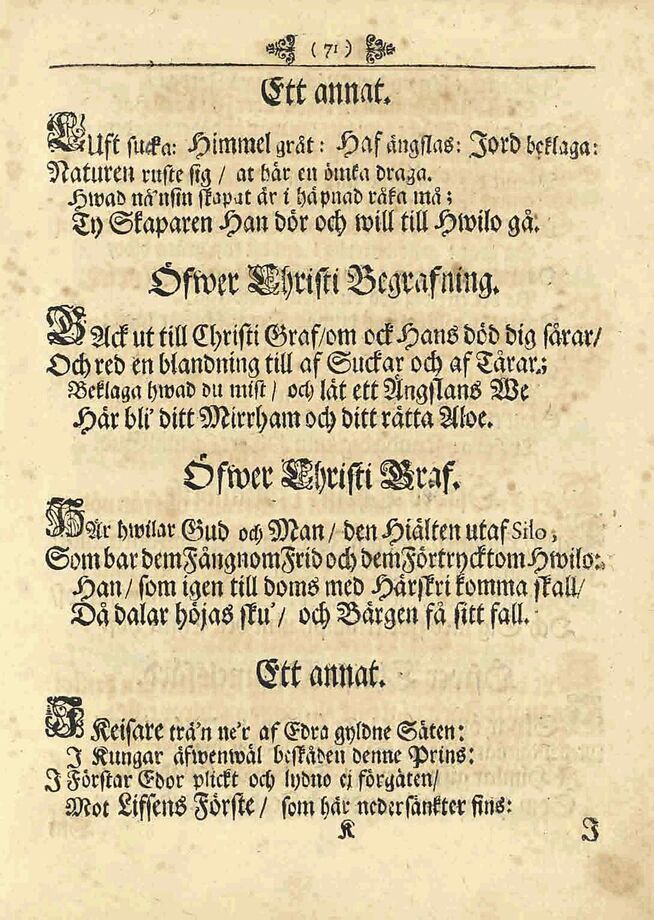 ( 71 )
Ett annat.
LUft sucka: Himmel gråt: Haf ängslas: Jord beklaga:
Naturen ruste sig / at här en ömka draga.
Hwad nå'nsin skapat är i häpnad råka må;
Ty Skaparen Han dör och will till Hwilo gå.
Öfwer Christi Begrafning.
GAck ut till Christi Graf/om ock Hans död dig sårar/
Och red en blandning till af Suckar och af Tårar;
Beklaga hwad du mist / och lät ett Ängslans We
Här bli' ditt Mirrham och ditt rätta Aloe.
Öfwer Christi Graf.
HÄr hwilar Gud och Man / den Hiälten utaf Silo,
Som bar dem Fångnom Frid och dem Förtrycktom Hwilo:
Han / som igen till doms med Härskri komma skall/
Då dalar höjas sku' / och Bärgen få sitt fall.
Ett annat.
I Keisare trä'n ne'r af Edra gyldne Säten:
I Kungar äfwenwäl beskåden denne Prins:
I Förstar Edor plickt och lydno ej förgäten/
Mot Lifsens Förste / som här nedersänkter fins:
K
I